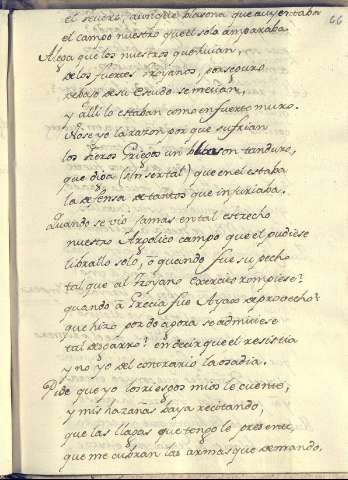 66
el severo, aunque blasona que auyentaba
el campo nuestro que el solo amparaba
Alega que los nuestros que huian,
de los fuertes troyanos, por seguro
debajo de su escudo se metian,
y alli lo estaban como en fuerte muro.
No se yo la razon por que sufrian
los fieros Griegos un blason tan duro,
que diga (sin ser tal) que en el estaba
la defensa de tantos que injuriaba.
Quando se vió jamas en tal estrecho
nuestro Argolico campo que el pudiese
libralle solo, ó quando fue su pecho
tal que al Troyano exercito rompiese?
quando á Grecia fue Ayace de provecho?
que hizo por do agora se admitiese
tal descarro? en decir que el resistia
y no yo del contrario la osadia.
Pide que yo los riesgos mios le cuente,
y mis hazañas vaya recitando,
que las llagas que tengo le presente,
que me cubran las armas que demando.